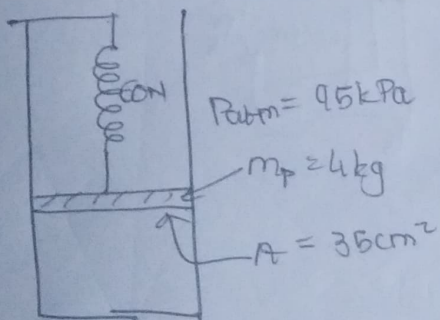 60N
Patm = 95kPa
mp = 4kg
A = 35cm²